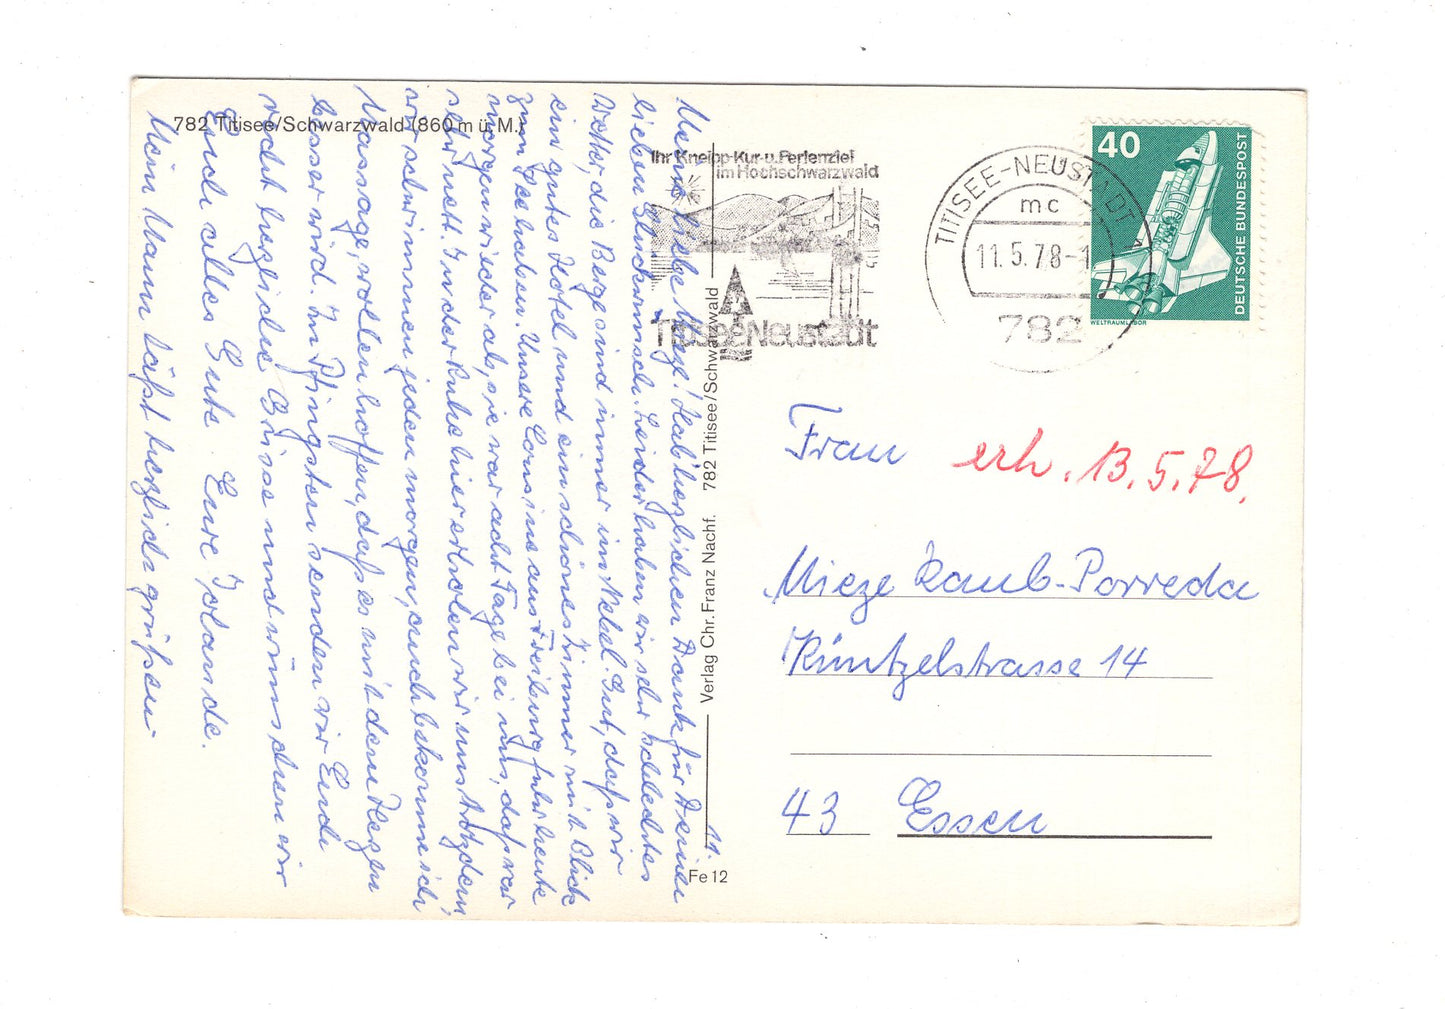 782 Titisee/Schwarzwald (860 m ü. M.)
Meine liebe Mieze! Hab' herzlichen Dank für Deinen
lieben Glückwunsch. Leider haben wir sehr schlechtes
Wetter, die Berge sind immer im Nebel. Gut, daß wir
ein gutes Hotel und ein schönes Zimmer mit Blick
zum See haben. Unsere Cousine aus Freiburg fuhr heute
morgen wieder ab, sie war acht Tage bei uns, das war
sehr nett. In der Ruhe hier erholen wir uns trotzdem,
wir schwimmen jeden morgen, auch bekomme ich
Massage, wollen hoffen, daß es mit dem Herzen
besser wird. Zu Pfingsten senden wir Euch
recht herzliche Grüße und wünschen wir
Euch alles Gute. Eure Jolande.
Mein Mann läßt herzlich grüßen
11.
Verlag Chr. Franz Nachf. 782 Titisee/Schwarzwald
Fe 12
Ihr Kneipp-Kur- u. Ferienziel
im Hochschwarzwald
Titisee-Neustadt
TITISEE-NEUSTADT
mc
11.5.78-1
782
40
DEUTSCHE BUNDESPOST
WELTRAUMLABOR
Frau erh. 13.5.78.
Mieze Raub-Porreda
Küntzelstrasse 14
43 Essen